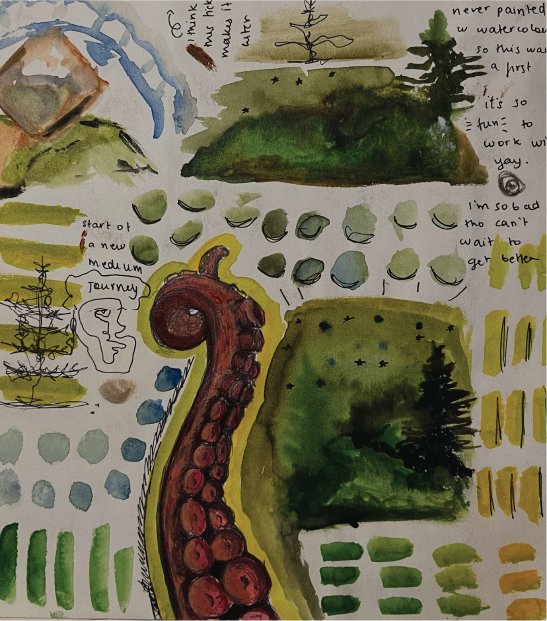 i think
this
makes it
never painted
w watercolou
so this was
a first
it's so
fun to
work wi
yay.
i'm so bad
tho can't
wait to
get better
start of
a new
medium
journey